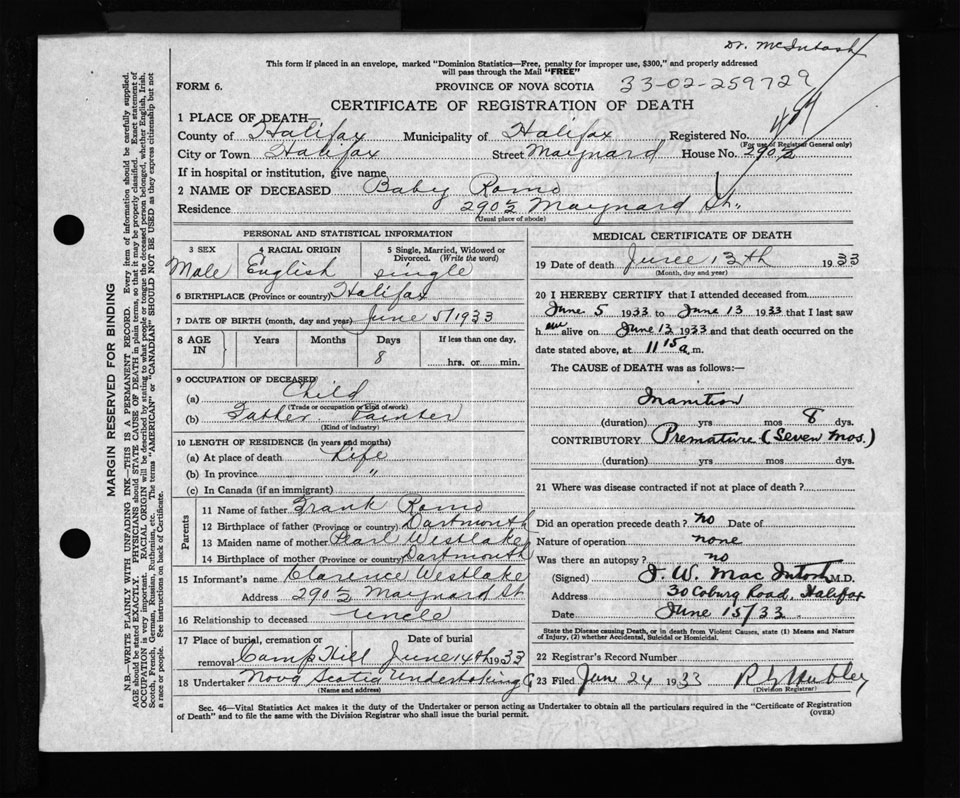 Dr. McIntosh
This form if placed in an envelope, marked "Dominion Statistics—Free, penalty for improper use, $300," and properly addressed
will pass through the Mail "FREE"
FORM 6. PROVINCE OF NOVA SCOTIA 33-02-259729
CERTIFICATE OF REGISTRATION OF DEATH
1 PLACE OF DEATH—
County of Halifax Municipality of Halifax Registered No.
(For use of Registrar General only)
City or Town Halifax Street Maynard House No. 290½
If in hospital or institution, give name
2 NAME OF DECEASED Baby Romo
Residence 290½ Maynard St.,
(Usual place of abode)
PERSONAL AND STATISTICAL INFORMATION
3 SEX 4 RACIAL ORIGIN 5 Single, Married, Widowed or
Divorced. (Write the word)
Male English single
6 BIRTHPLACE (Province or country) Halifax
7 DATE OF BIRTH (month, day and year) June 5/1933
8 AGE IN Years Months Days If less than one day,
8 hrs. or min.
9 OCCUPATION OF DECEASED
(a) Child
(Trade or occupation or kind of work)
(b) Father Painter
(Kind of industry)
10 LENGTH OF RESIDENCE (in years and months)
(a) At place of death Life
(b) In province "
(c) In Canada (if an immigrant)
Parents
11 Name of father Frank Romo
12 Birthplace of father (Province or country) Dartmouth
13 Maiden name of mother Pearl Westlake
14 Birthplace of mother (Province or country) Dartmouth
15 Informant's name Clarence Westlake
Address 290½ Maynard St
16 Relationship to deceased uncle
17 Place of burial, cremation or Date of burial
removal Camp Hill June 14th 1933
18 Undertaker Nova Scotia Undertaking Co
(Name and address)
MEDICAL CERTIFICATE OF DEATH
19 Date of death June 13th 1933
(Month, day and year)
20 I HEREBY CERTIFY that I attended deceased from
June 5 1933 to June 13 1933 that I last saw
h alive on June 13 1933 and that death occurred on the
date stated above, at 11 15 a.m.
The CAUSE of DEATH was as follows:—
Inanition
(duration) yrs mos 8 dys.
CONTRIBUTORY Premature (Seven Mos.)
(duration) yrs mos dys.
21 Where was disease contracted if not at place of death?
Did an operation precede death? no Date of
Nature of operation none
Was there an autopsy? no
(Signed) J. W. MacIntosh M.D.
Address 30 Coburg Road, Halifax
Date June 15/33
State the Disease causing Death, or in death from Violent Causes, state (1) Means and Nature
of Injury, (2) whether Accidental, Suicidal or Homicidal.
22 Registrar's Record Number
23 Filed June 24 1933 Hubley
(Division Registrar)
Sec. 46—Vital Statistics Act makes it the duty of the Undertaker or person acting as Undertaker to obtain all the particulars required in the "Certificate of Registration
of Death" and to file the same with the Division Registrar who shall issue the burial permit. (OVER)
MARGIN RESERVED FOR BINDING
N.B.—WRITE PLAINLY WITH UNFADING INK—THIS IS A PERMANENT RECORD. Every item of information should be carefully supplied.
AGE should be stated EXACTLY. PHYSICIANS should STATE CAUSE OF DEATH in plain terms, so that it may be properly classified. Exact statement of
OCCUPATION is very important. RACIAL ORIGIN will be described by stating to what people or tongue the deceased person belonged, whether English, Irish,
Scotch, French, German, Russian, Ruthenian, etc. The terms "AMERICAN" or "CANADIAN" SHOULD NOT BE USED as they express citizenship but not
a race or people. See instructions on back of Certificate.